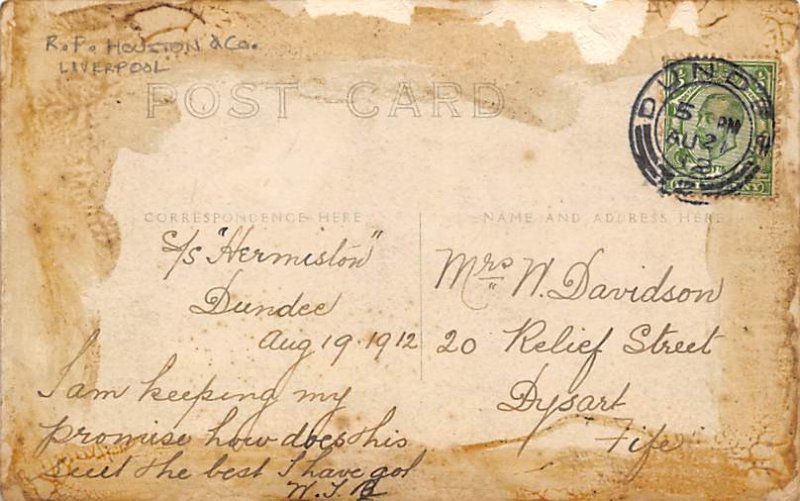 R.P. HOUSTON & Co.
LIVERPOOL
POST CARD
DUNDEE
5 PM
AU 21
12
CORRESPONDENCE HERE
NAME AND ADDRESS HERE
S/S "Hermiston"
Dundee
Aug 19. 1912
I am keeping my
promise how does this
suit the best I have got
Mrs W. Davidson
20 Relief Street
Dysart
Fife